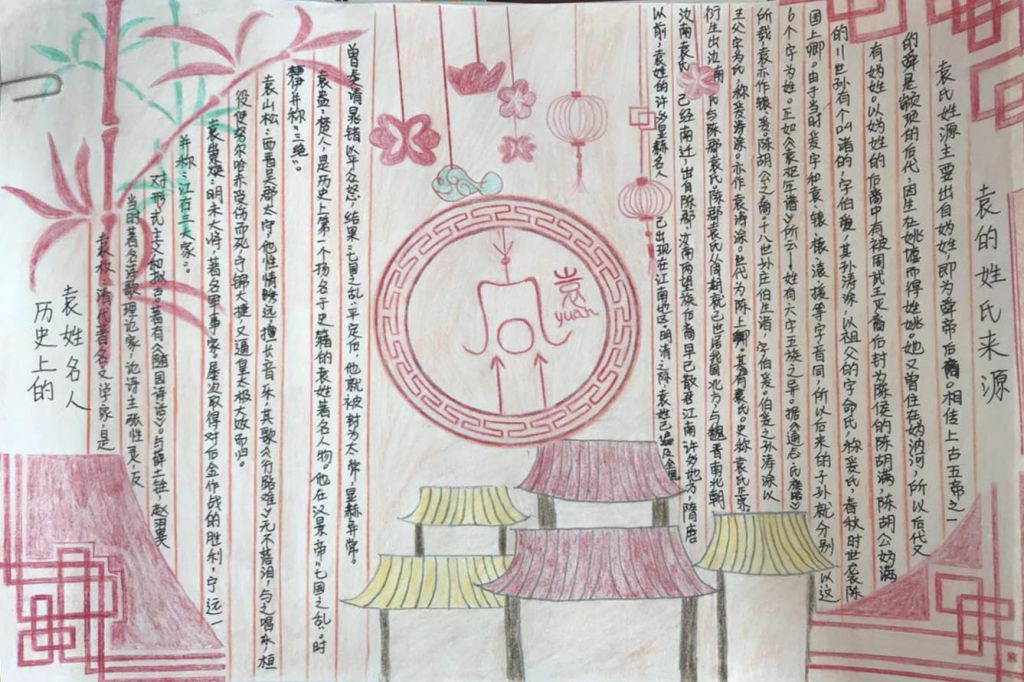 袁的姓氏来源
袁氏姓源主要出自妫姓,即为舜帝后裔。相传上古五帝之一
的舜是颛顼的后代,因生在姚墟而得姓姚。她又曾住在妫汭河,所以后代又
有妫姓。以妫姓的后裔中有被周武王灭商后封为陈侯的陈胡满,陈胡公妫满
的11世孙有个叫诸的,字伯爰,其孙涛涂,以祖父的字命氏,称爰氏,春秋时世袭陈
国上卿。由于当时爰字和袁、辕、榬、溒、援等字音同,所以后来的子孙就分别以这
6个字为姓。正如《袁枢年谱》所云一姓有六字五族之异。据《通志·氏族略》
所载,袁亦作辕、爰。陈胡公之裔,十八世孙庄伯生诸,字伯爰。伯爰之孙涛涂以
王父字为氏,称爰涛涂。亦作袁涛涂。世代为陈上卿,其有袁氏。史称袁氏正宗。
衍生出汝南 氏与陈郡袁氏,陈郡袁氏从周朝就已世居我国北方,与魏晋南北朝
汝南袁氏 己经南迁,出自陈郡,汝南两望族后裔早已散居江南许多地方,隋唐
以前,袁姓的许多显赫名人 已出现在江南地区,明清之际,袁姓已遍及全国
曾奏请晁错以平众怒,结果:七国之乱:平定后,他就被封为太常,显赫异常。
袁盎:楚人,是历史上第一个扬名于史籍的袁姓著名人物。他在汉景帝"七国之乱:时
静伊并称"三绝"。
袁山松:西晋吴郡太守,他性情畴远,擅长音乐,其歌《行路难》无不落泪,与之唱乐,桓
役使努尔哈赤受伤而死,宁锦大捷,又逼皇太极大败而归。
袁崇焕:明末大将,著名军事家。屡次取得对后金作战的胜利,宁远一
并称:江右三大家"。
对形式主义和拟古,著有《随园诗话》。与蒋士铨,赵翼
当时著名诗歌理论家,论诗主张性灵,反
袁枚:清代著名文学家,是
袁姓名人
历史上的
袁
yuán